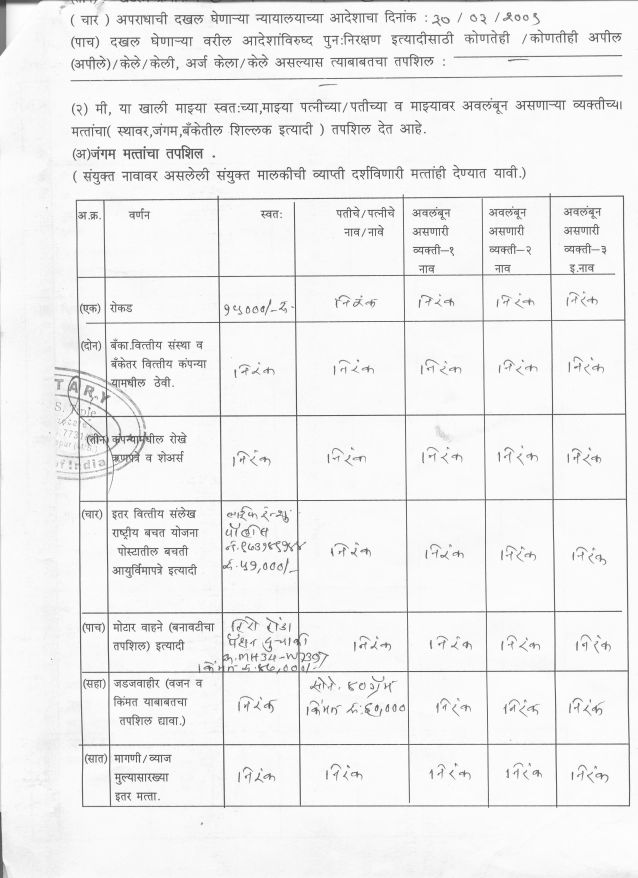 ( चार ) अपराधाची दखल घेणाऱ्या न्यायालयाच्या आदेशाचा दिनांक :
(पाच) दखल घेणाऱ्या वरील आदेशांविरुध्द पुन:निरक्षण इत्यादीसाठी कोणतेही /कोणतीही अपील
(अपीले)/केले/केली, अर्ज केला/केले असल्यास त्याबाबतचा तपशिल :
(२) मी, या खाली माझ्या स्वत:च्या,माझ्या पत्नीच्या/पतीच्या व माझ्यावर अवलंबून असणाऱ्या व्यक्तीच्या
मत्तांचा( स्थावर,जंगम,बँकेतील शिल्लक इत्यादी ) तपशिल देत आहे.
(अ)जंगम मत्तांचा तपशिल .
( संयुक्त नावावर असलेली संयुक्त मालकीची व्याप्ती दर्शविणारी मत्तांही देण्यात यावी.)
अ.क्र. वर्णन स्वत: पतीचे/पत्नीचे अवलंबून अवलंबून अवलंबून
नाव/नावे असणारी असणारी असणारी
व्यक्ती–१ व्यक्ती–२ व्यक्ती–३
नाव नाव इ.नाव
(एक) रोकड १५०००/-रु. निरंक निरंक निरंक निरंक
(दोन) बँका.वित्तीय संस्था व
बँकेतर वित्तीय कंपन्या निरंक निरंक निरंक निरंक निरंक
यामधील ठेवी.
(तीन) कंपन्यामधील रोखे
ऋणपत्रे व शेअर्स निरंक निरंक निरंक निरंक निरंक
(चार) इतर वित्तीय संलेख
राष्ट्रीय बचत योजना पॉलिसी
पोस्टातील बचती निरंक निरंक निरंक निरंक
आयुर्विमापत्रे इत्यादी रु.५१,०००/-
(पाच) मोटार वाहने (बनावटीचा हिरो होंडा
तपशिल) इत्यादी निरंक निरंक निरंक निरंक
क्र.MH34-W
किंमत रु.
(सहा) जडजवाहीर (वजन व सोने. ४०ग्रॅम
किंमत याबाबतचा निरंक किंमत रु.६०,००० निरंक निरंक निरंक
तपशिल द्यावा.)
(सात) मागणी/व्याज
मुल्यासारख्या निरंक निरंक निरंक निरंक निरंक
इतर मत्ता.
TARY
of India